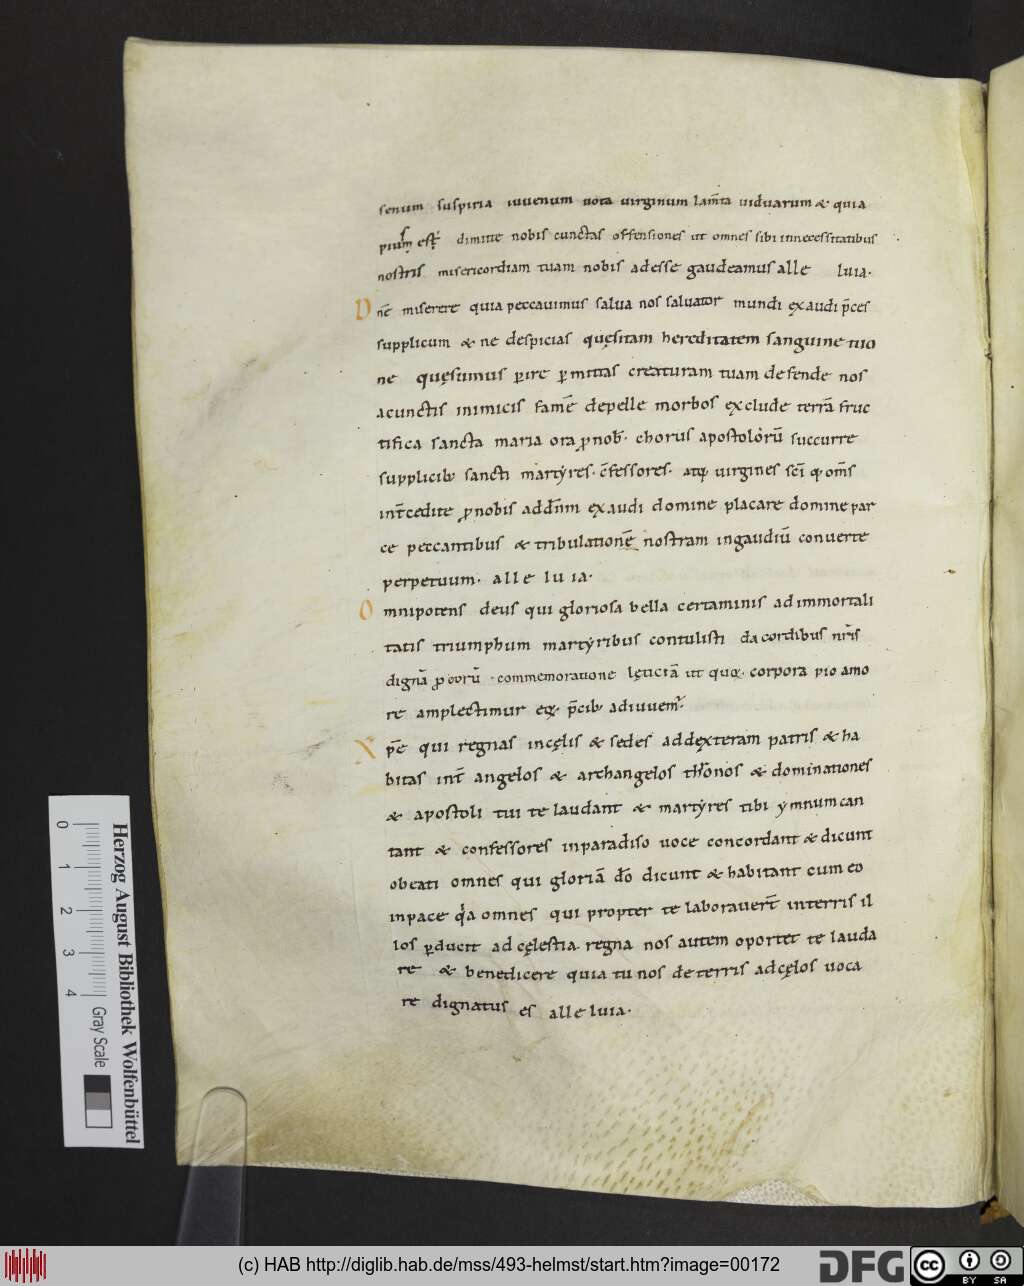 senum suspiria iuuenum uota uirginum lam̄ta uiduarum & quia
est dimitte nobis cunctas offensiones ut omnes sibi innecessitatibus
nostris misericordiam tuam nobis adesse gaudeamus alle luia·
Dn̄e miserere quia peccauimus salua nos saluator mundi exaudi p̄ces
supplicum & ne despicias quęsitam hereditatem sanguine tuo
ne quęsumus ꝑire ꝑmittas creaturam tuam defende nos
acunctis inimicis famē depelle morbos exclude terrā fruc
tifica sancta maria ora ꝓnob̄· chorus apostolorū succurre
supplicib; sancti martẏres· c̄fessores· atq; uirgines sc̄i q; om̄s
int̄cedite ꝓnobis addn̄m exaudi domine placare domine par
ce peccantibus & tribulationē nostram ingaudiū conuerte
perpetuum· alle lu ia·
Omnipotens deus qui gloriosa bella certaminis adimmortali
tatis triumphum martẏribus contulisti da cordibus nr̄is
dignā ꝓeorū commemoratione lęticiā ut quoꝝ corpora pio amo
re amplectimur eoꝝ p̄cib; adiuuem̄·
Xp̄e qui regnas incęlis & sedes addexteram patris & ha
bitas int̄ angelos & archangelos thronos & dominationes
& apostoli tui te laudant & martẏres tibi ẏmnum can
tant & confessores inparadiso uoce concordant & dicunt
obeati omnes qui gloriā dō dicunt & habitant cum eo
inpace qa omnes qui propter te laborauert̄ interris il
los ꝑducit ad cęlestia regna nos autem oportet te lauda
re & benedicere quia tu nos deterris adcęlos uoca
re dignatus es alle luia·
0 1 2 3 4
Herzog August Bibliothek Wolfenbüttel
Gray Scale
(c) HAB http://diglib.hab.de/mss/493-helmst/start.htm?image=00172
DFG
cc BY SA